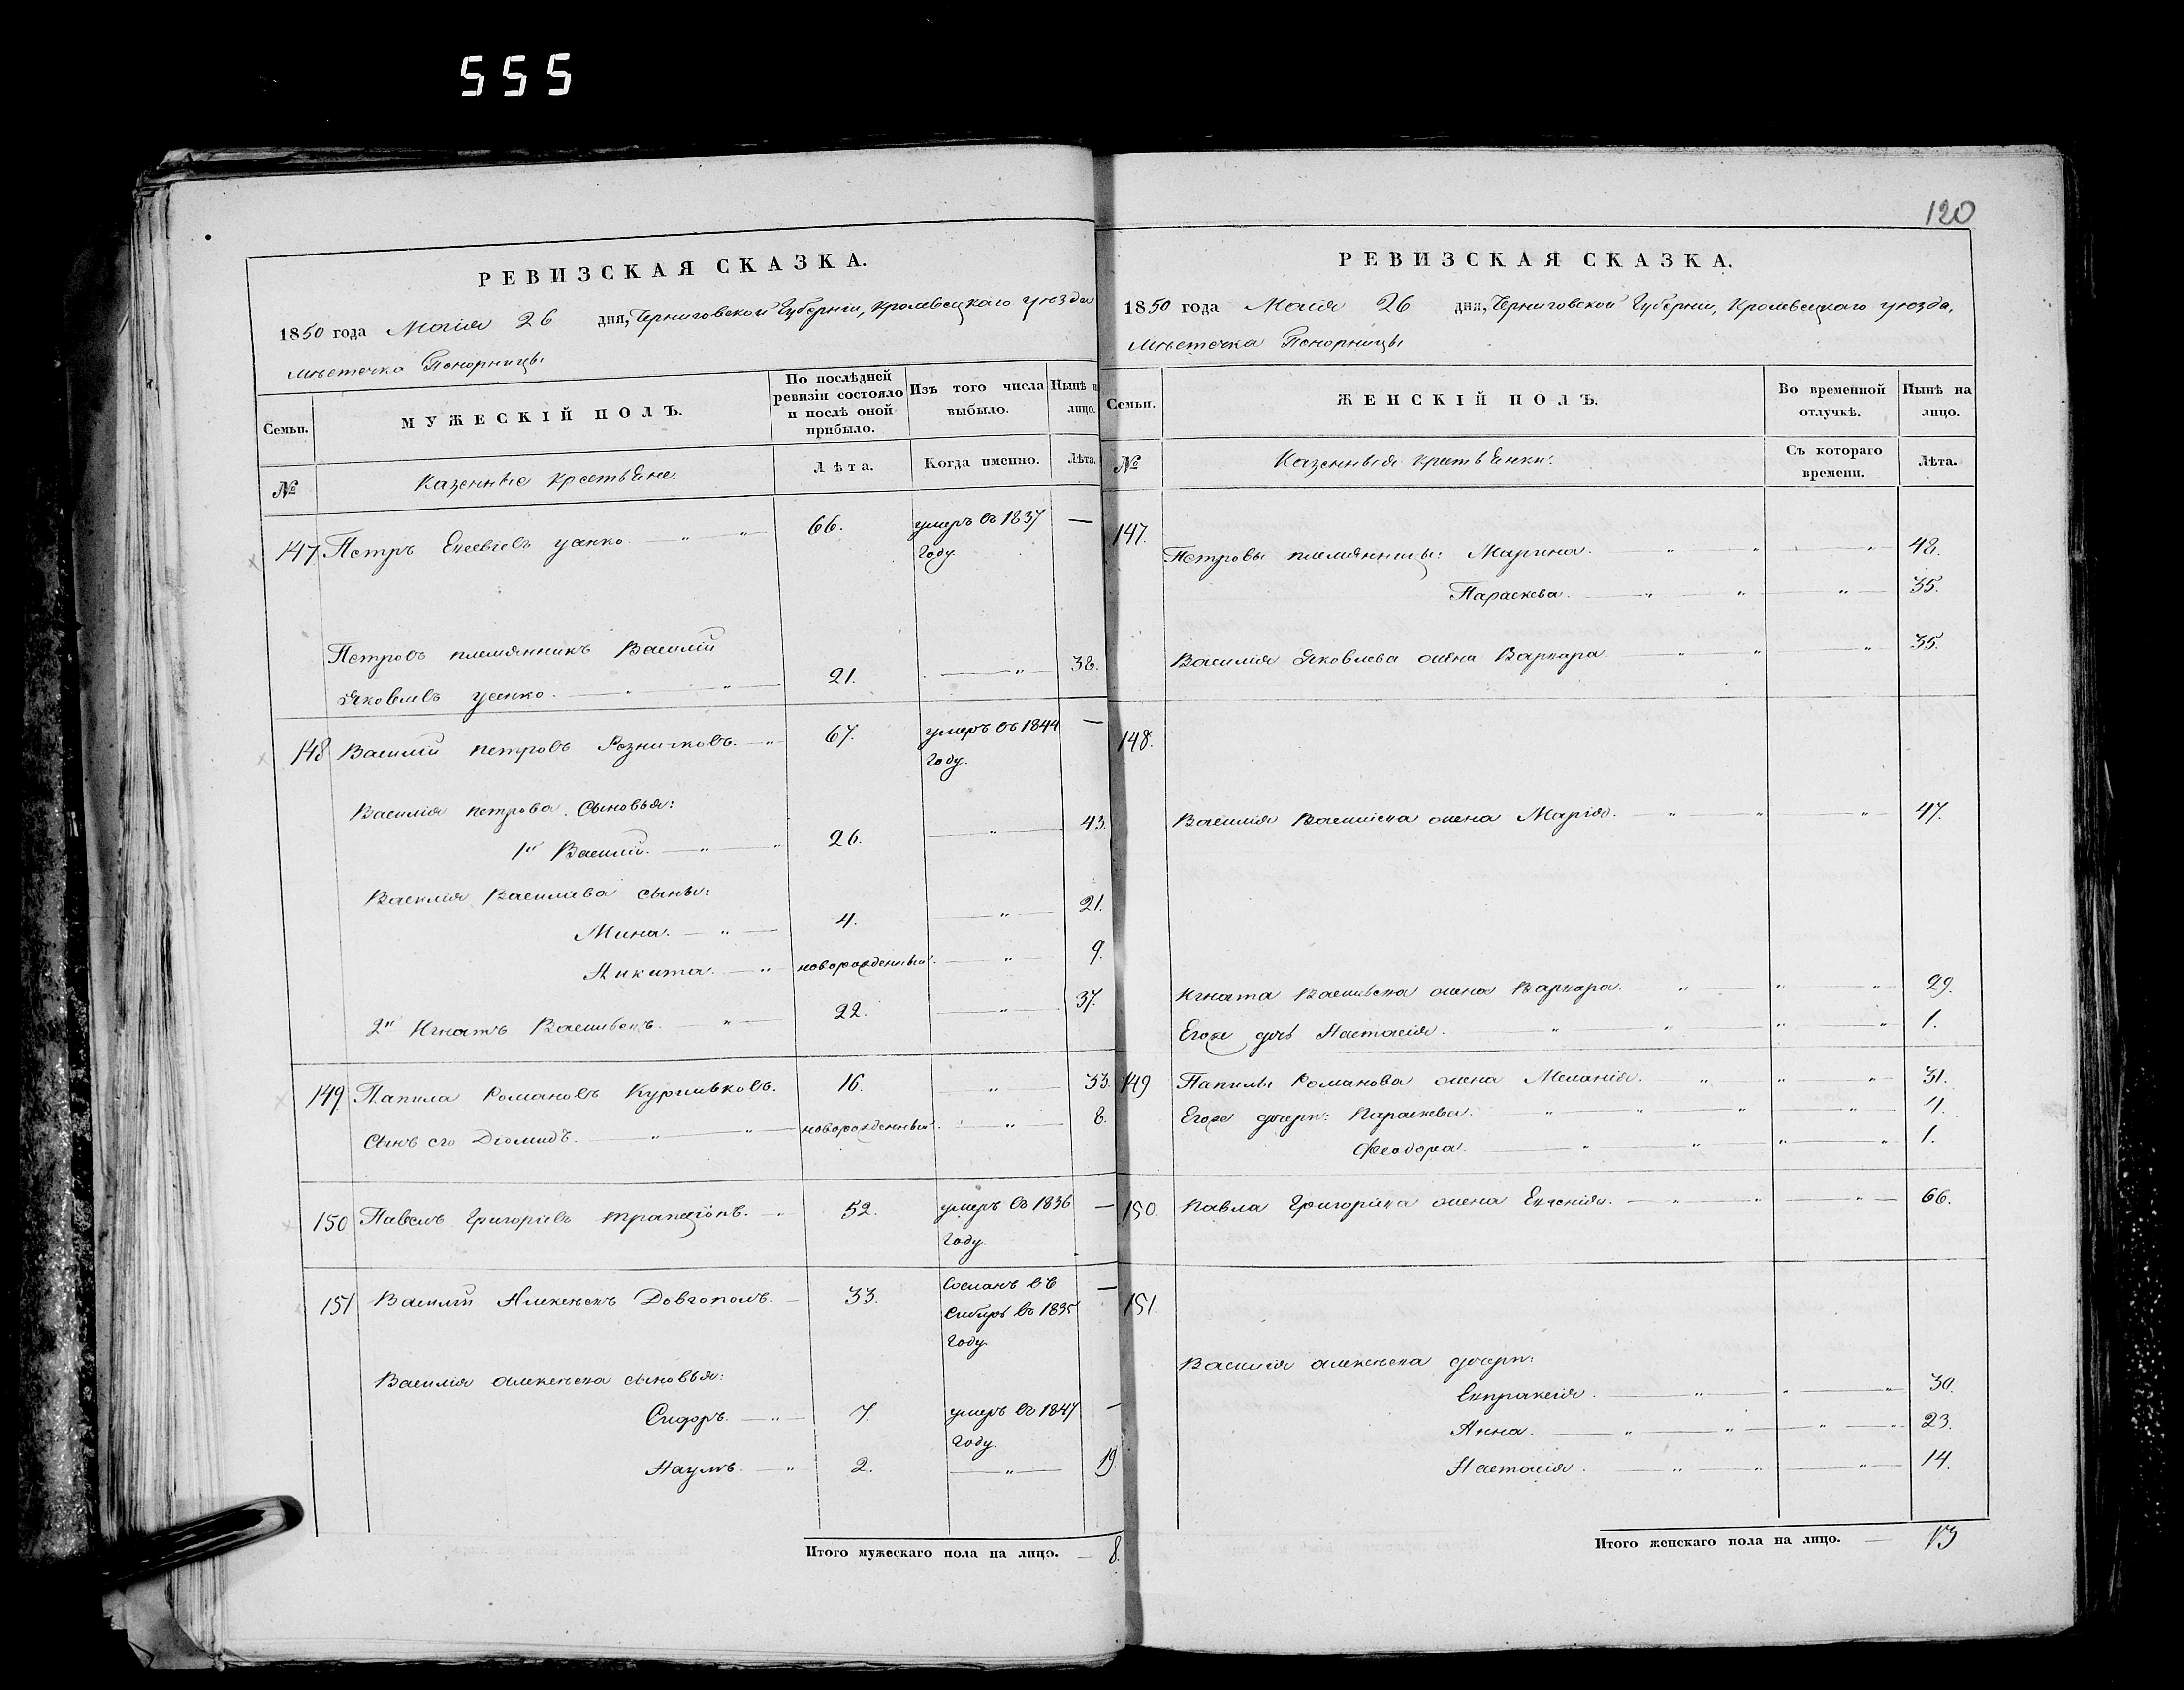 555
120
РЕВИЗСКАЯ СКАЗКА.
1850 года Маія 26 дня, Черниговской Губерніи, Кролевецкаго уѣзда
мѣстечка Понорницы
Семьи.
МУЖЕСКІЙ ПОЛЪ.
По послѣдней ревизіи состояло и послѣ оной прибыло.
Изъ того числа выбыло.
Нынѣ лицо.
№
Казенные крестьяне.
Лѣта.
Когда именно.
Лѣта.
147 Петръ Усенко. 66. умеръ въ 1837 —
году.
Петровъ племянникъ Василій
Яковлевъ Усенко. 21. 38.
148 Василій Петровъ Резничковъ. 67. умеръ въ 1844 —
году.
Василія Петрова Сыновья:
1й Василій. 26. 43.
Василія Васильева сыны:
Мина. 4. 21.
Никита. новорожденный. 9.
2й Игнатъ Васильевъ. 22. 37.
149 Данила Романовъ Курильковъ. 16. 33.
Сынъ его Діомидъ. новорожденный. 8.
150 Павелъ Григоріевъ 52. умеръ въ 1836 —
году.
151 Василій Алексѣевъ Довгополъ. 33. Сосланъ въ —
Сибирь въ 1835
году.
Василія Алексѣева сыновья:
Сидоръ. 7. умеръ въ 1847 —
году.
Наумъ. 2. 19.
Итого мужескаго пола на лицо. — 8.
РЕВИЗСКАЯ СКАЗКА.
1850 года Маія 26 дня, Черниговской Губерніи, Кролевецкаго уѣзда,
мѣстечка Понорницы
Семьи.
ЖЕНСКІЙ ПОЛЪ.
Во временной отлучкѣ.
Нынѣ на лицо.
№
Казенныя крестьянки.
Съ котораго времени.
Лѣта.
147. Петровы племянницы: Марина. 48.
Параскева. 35.
Василія Яковлева жена Варвара. 35.
148.
Василія Васильева жена Марія. 47.
Игната Васильева жена Варвара. 29.
Егоже дочь Настасія. 1.
149 Данилы Романова жена Меланія. 31.
Егоже дочери: Параскева. 4.
Феодора. 1.
150. Павла Григоріева жена Евгенія. 66.
151.
Василія Алексѣева дочери:
Евпраксія. 30.
Анна. 23.
Настасія. 14.
Итого женскаго пола на лицо. — 13